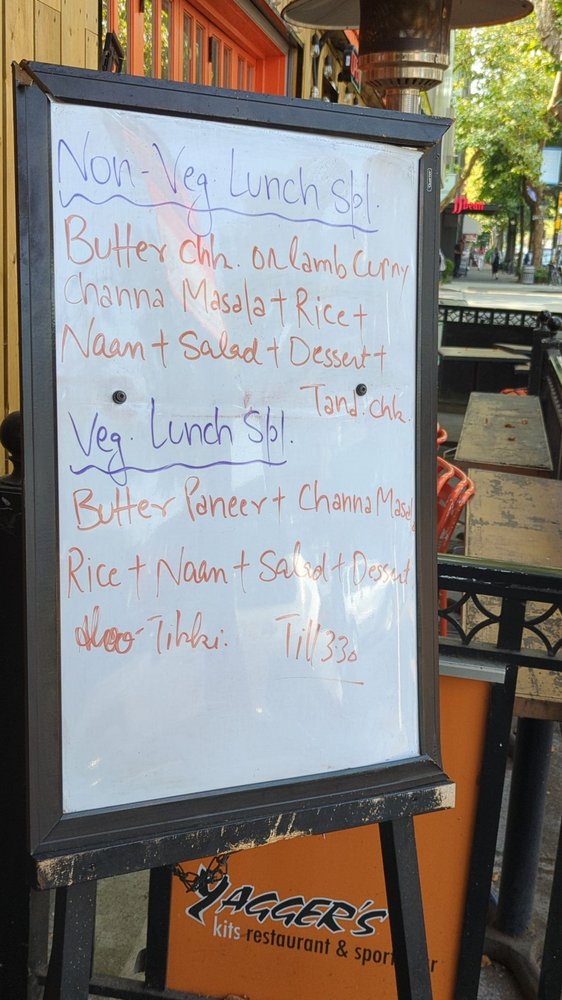 Non-Veg. Lunch Spl.
Butter Chk. or Lamb Curry
Channa Masala + Rice +
Naan + Salad + Dessert +
Tand. Chk.
Veg. Lunch Spl.
Butter Paneer + Channa Masala
Rice + Naan + Salad + Dessert
Aloo-Tikki. Till 3:30
YAGGER'S
kits restaurant & sports bar